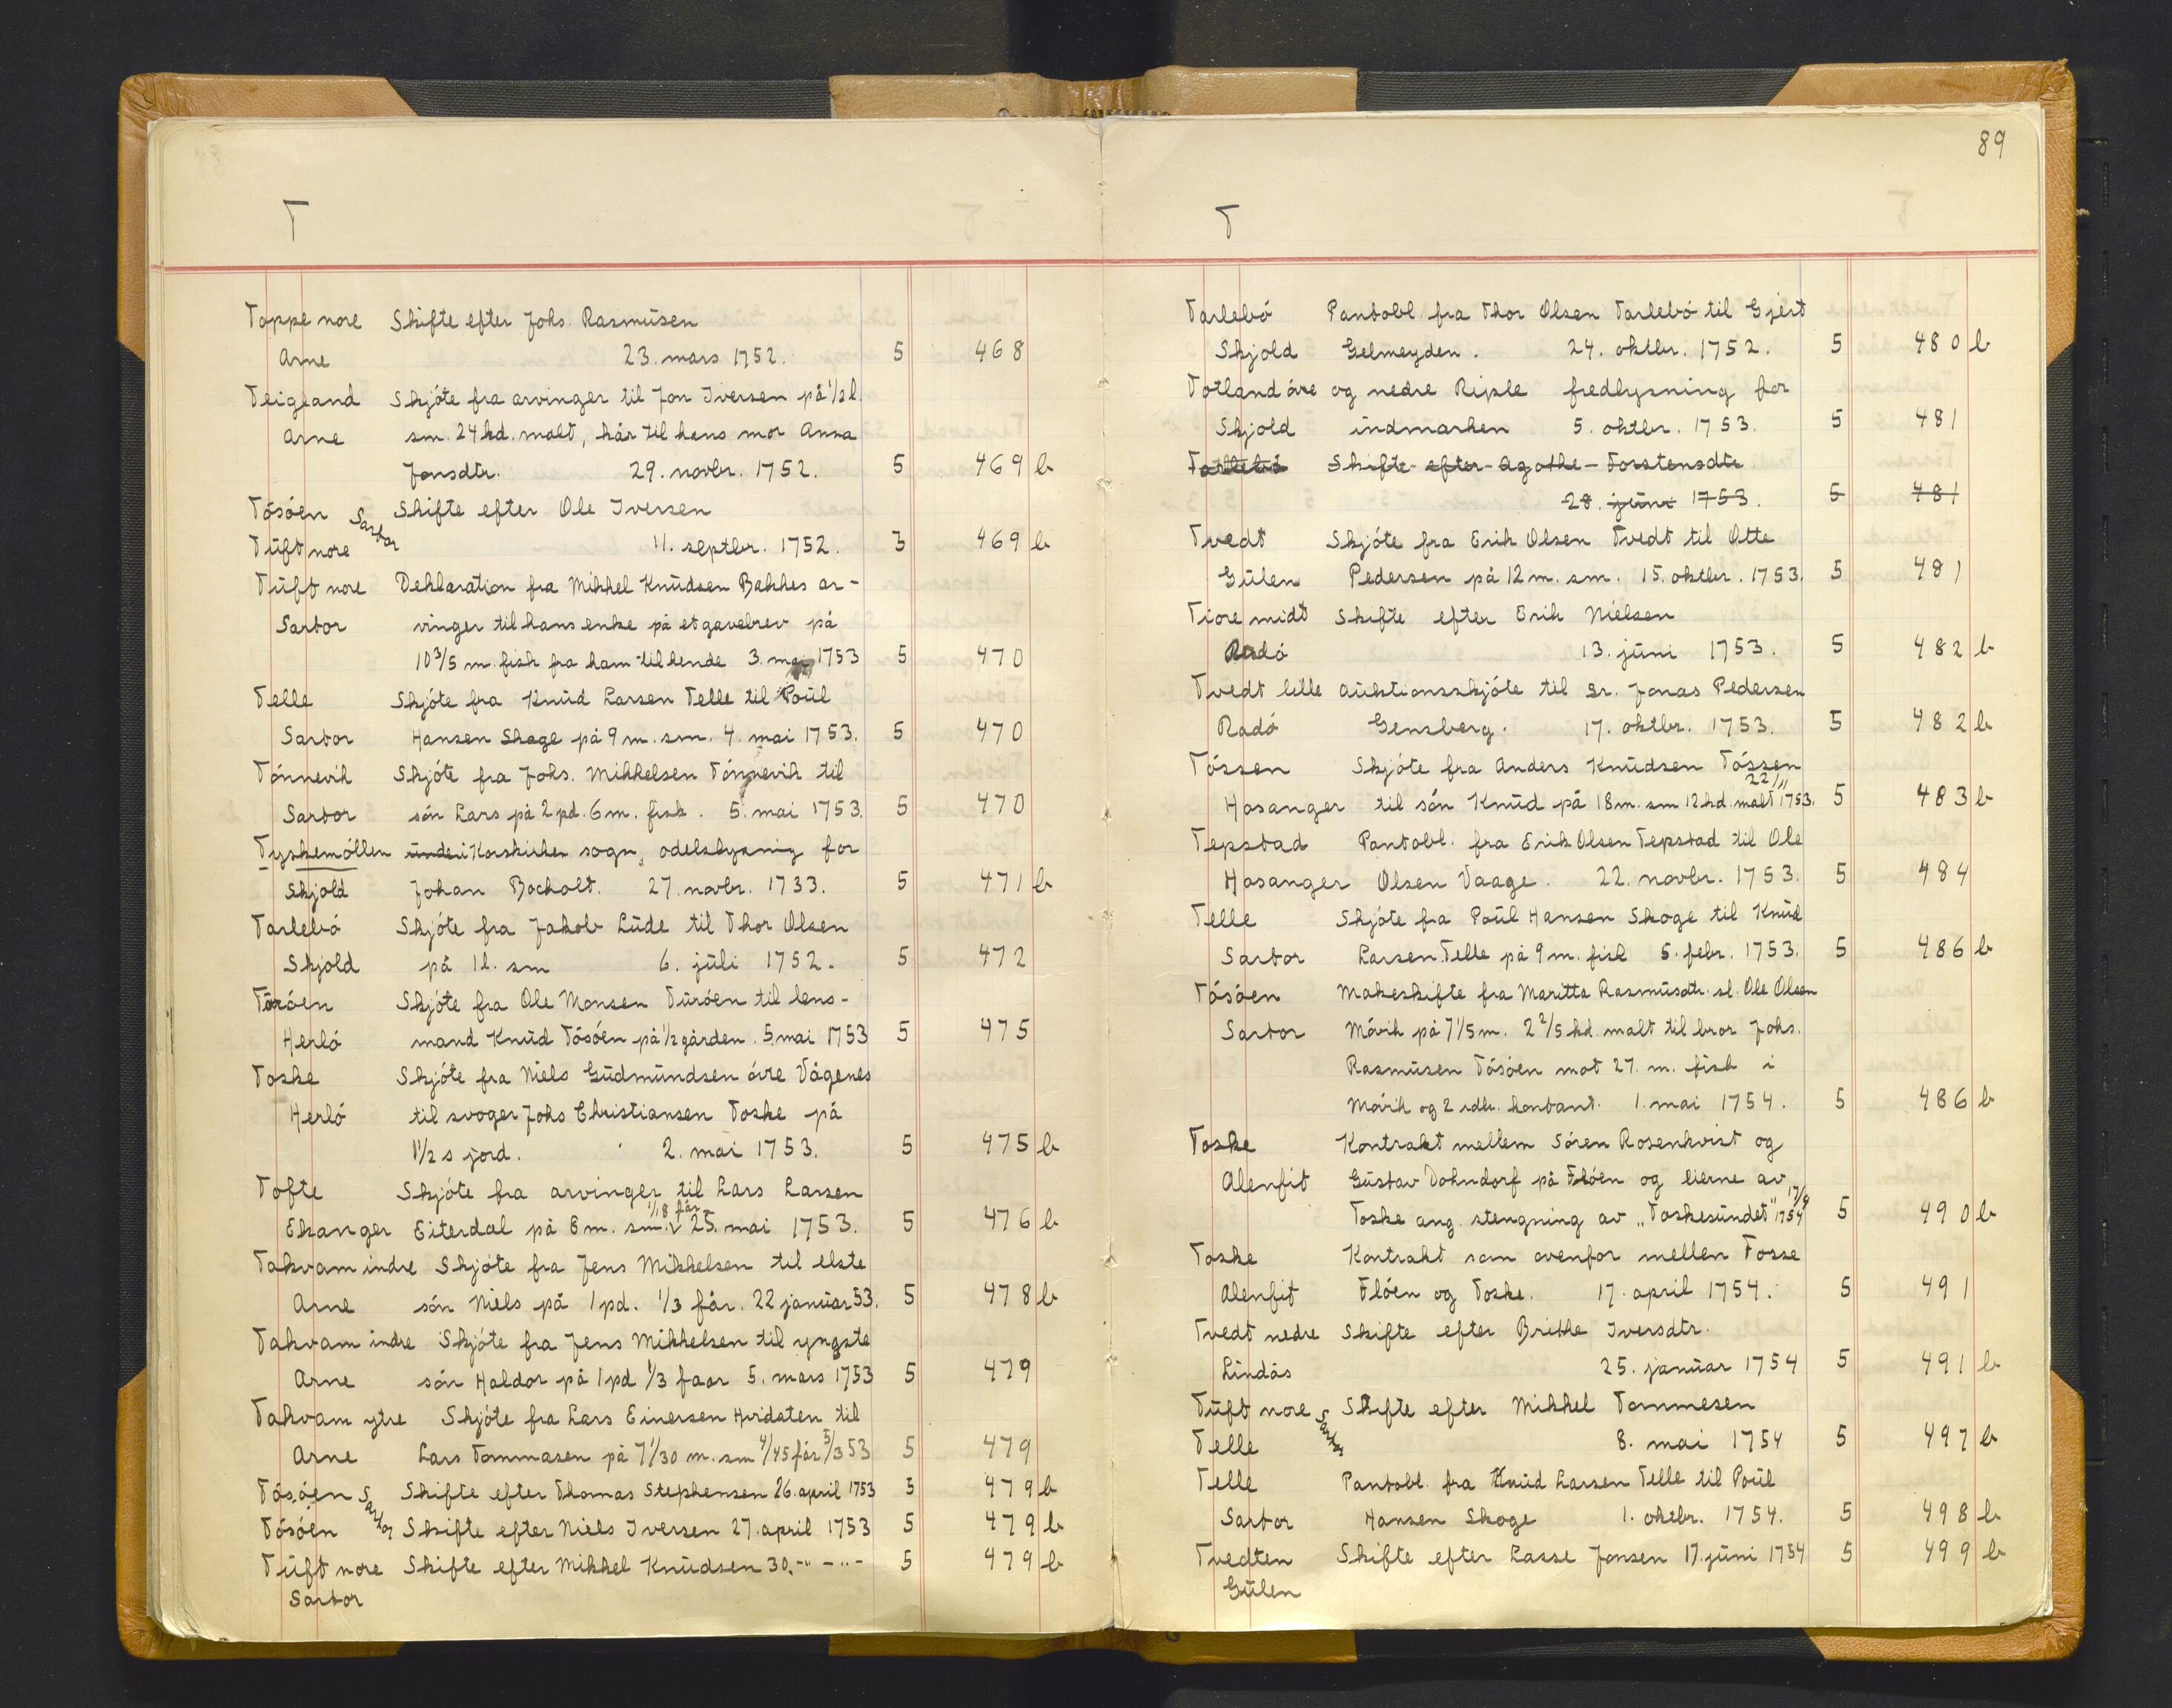 T
Toppe nore Skifte efter Johs. Rasmüsen
Arne 23. mars 1752. 5 468
Teigland Skjóte fra arvinger til Jon Iversen på 1/2 l.
Arne sm. 24 kd. malt, kår til hans mor Anna
Jonsdtr. 29. novbr. 1752. 5 469 b
Tósóen Sartor Skifte efter Ole Iversen
Tüft nore 11. septbr. 1752. 3 469 b
Tüft nore Deklaration fra Mikkel Knüdsen Bakkes ar-
Sartor vinger til hans enke på et gavebrev på
10 3/5 m. fisk fra ham til hende 3. mai 1753 5 470
Telle Skjóte fra Knüd Larsen Telle til Poül
Sartor Hansen Skoge på 9 m. sm. 4. mai 1753. 5 470
Tónnevik Skjóte fra Johs. Mikkelsen Tónnevik til
Sartor són Lars på 2 pd. 6 m. fisk. 5. mai 1753. 5 470
Tyskemóllen ünder i Korskirken sogn, odelslysning for
Skjold Johan Bocholt. 27. novbr. 1733. 5 471 b
Tarlebó Skjóte fra Jakob Lüde til Thor Olsen
Skjold på 1 l. sm 6. jüli 1752. 5 472
Türóen Skjóte fra Ole Monsen Türóen til lens-
Herló mand Knüd Tósóen på 1/2 gården. 5. mai 1753 5 475
Toske Skjóte fra Niels Güdmündsen óvre Vågenes
Herló til svoger Johs Christiansen Toske på
1 1/2 s jord. 2. mai 1753. 5 475 b
Tofte Skjóte fra arvinger til Lars Larsen
Ekanger Eiterdal på 8 m. sm. 1/18 får 25. mai 1753. 5 476 b
Takvam indre Skjóte fra Jens Mikkelsen til elste
Arne són Niels på 1 pd. 1/3 får. 22 janüar 53. 5 478 b
Takvam indre Skjóte fra Jens Mikkelsen til yngste
Arne són Haldor på 1 pd 1/3 faar 5. mars 1753 5 479
Takvam ytre Skjóte fra Lars Einersen Hvidsten til
Arne Lars Tommasen på 7 1/30 m. sm 4/45 får 5/3 53 5 479
Tósóen Sartor Skifte efter Thomas Stephensen 26. april 1753 5 479 b
Tósóen Skifte efter Niels Iversen 27. april 1753 5 479 b
Tüft nore Skifte efter Mikkel Knüdsen 30. -"- -"- 5 479 b
Sartor
89
T
Tarlebó Pantobl. fra Thor Olsen Tarlebó til Gjert
Skjold Gelmeyden. 24. oktbr. 1752. 5 480 b
Totland óvre og nedre Riple fredlysning for
Skjold indmarken 5. oktbr. 1753. 5 481
Tarlebó Skifte efter Agathe Torstensdtr
28. jüni 1753. 5 481
Tvedt Skjóte fra Erik Olsen Tvedt til Otte
Gülen Pedersen på 12 m. sm. 15. oktbr. 1753. 5 481
Tiore midt Skifte efter Erik Nielsen
Radó 13. jüni 1753. 5 482 b
Tvedt lille Auktionsskjóte til sr. Jonas Pedersen
Radó Gensberg. 17. oktbr. 1753. 5 482 b
Tóssen Skjóte fra Anders Knüdsen Tóssen
Hosanger til són Knüd på 18 m. sm 12 kd. malt 22/11 1753. 5 483 b
Tepstad Pantobl. fra Erik Olsen Tepstad til Ole
Hosanger Olsen Vaage. 22. novbr. 1753. 5 484
Telle Skjóte fra Poül Hansen Skoge til Knüd
Sartor Larsen Telle på 9 m. fisk 5. febr. 1753. 5 486 b
Tósóen Makeskifte fra Maritta Rasmüsdtr. sl. Ole Olsen
Sartor Móvik på 7 1/5 m. 2 2/5 kd. malt til bror Johs.
Rasmüsen Tósóen mot 27. m. fisk i
Móvik og 2 rdlr. kontant. 1. mai 1754. 5 486 b
Toske Kontrakt mellem Sóren Rosenkvist og
Alenfit Güstav Dohndorf på Flóen og eierne av
Toske ang. stengning av „Toskesündet" 17/4 1754 5 490 b
Toske Kontrakt som ovenfor mellen Fosse
Alenfit Flóen og Toske. 17. april 1754. 5 491
Tvedt nedre Skifte efter Brithe Iversdtr.
Lindås 25. janüar 1754 5 491 b
Tüft nore Sartor Skifte efter Mikkel Tommesen
Telle 8. mai 1754 5 497 b
Telle Pantobl. fra Knüd Larsen Telle til Poül
Sartor Hansen Skoge 1. oktbr. 1754. 5 498 b
Tvedten Skifte efter Lasse Jonsen 17. jüni 1754 5 499 b
Gülen